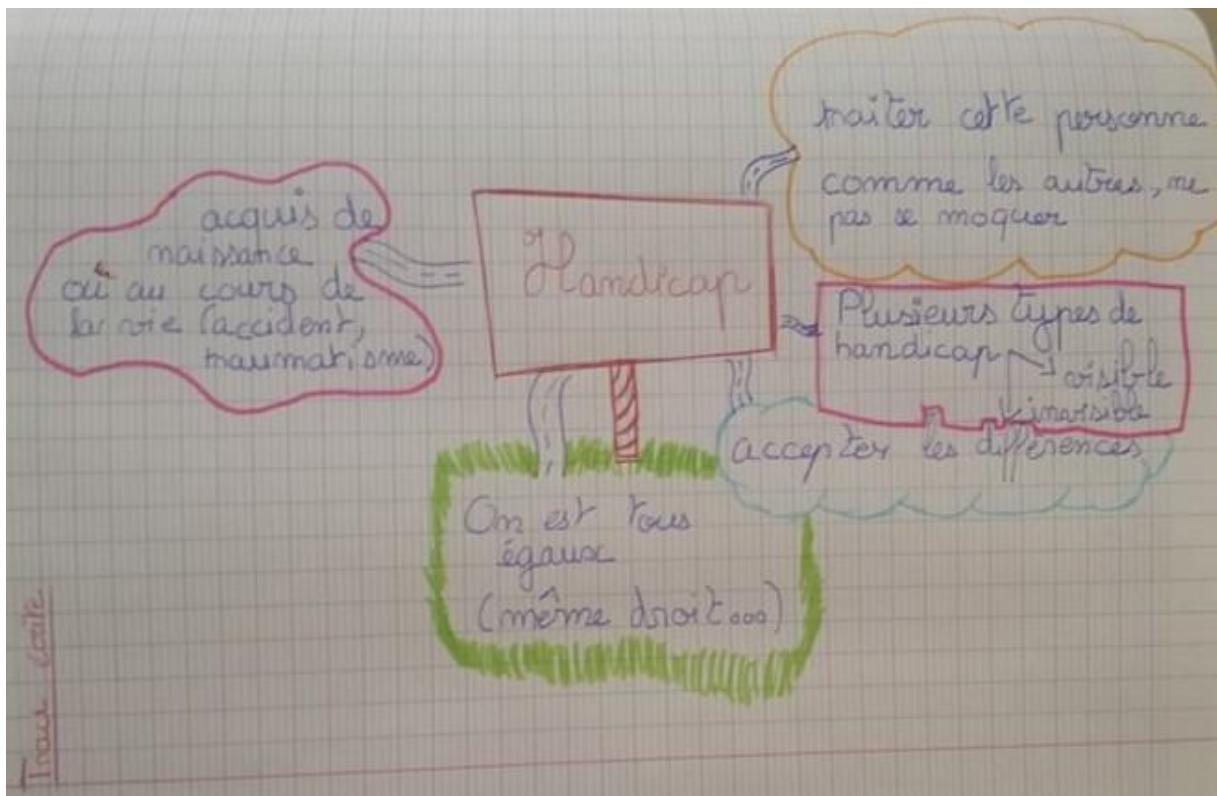 Handicap
acquis de
naissance
ou au cours de
la vie (accident,
traumatisme)
traiter cette personne
comme les autres, ne
pas se moquer
Plusieurs types de
handicap
visible
invisible
accepter les différences
On est tous
égaux
(même droit...)
Trace écrite